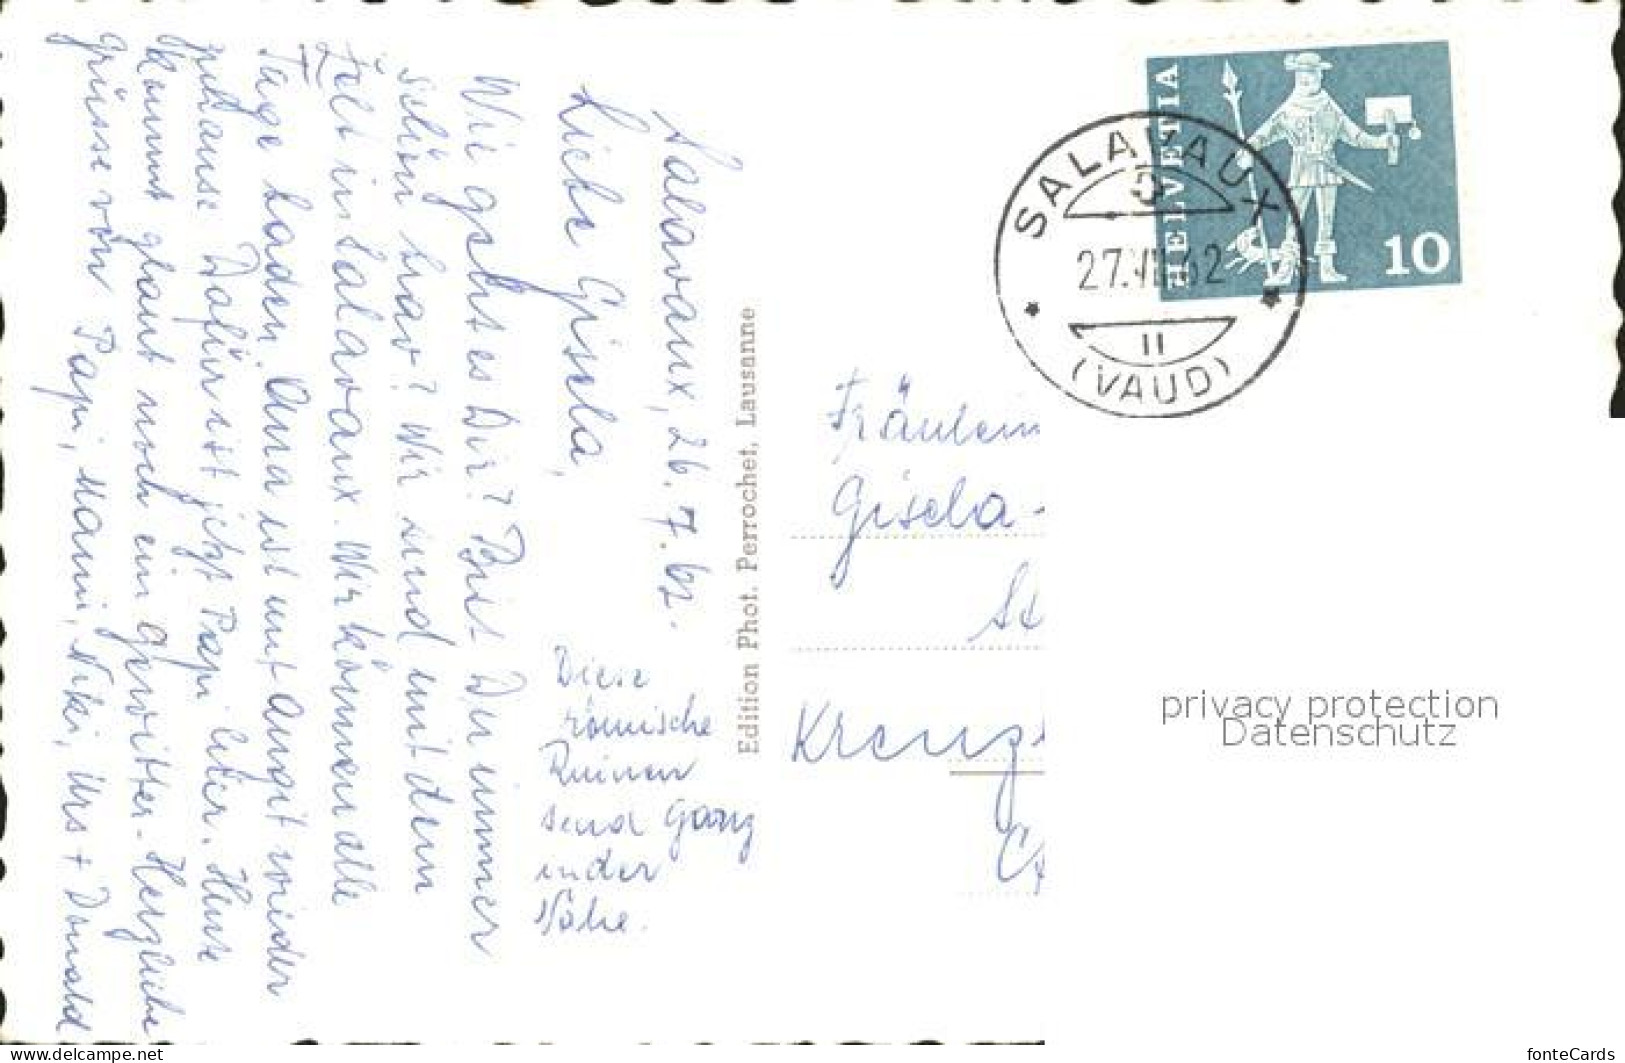 Salavaux, 26. 7. 62.
Liebe Gisela,
Wir geht es Dir? Bist Du immer
schön brav? Wir sind mit dem
Zelt in Salavaux. Wir können alle
Tage baden. Oma ist mit Augit wieder
zuhause. Dafür ist jetzt Papi hier. Heute
kommt glaub noch ein Gewitter. Herzliche
grüsse von Papi, Mami, Niki, Urs + Donald
Diese
römische
Ruinen
sind ganz
in der
Nähe.
Edition Phot. Perrochet, Lausanne
HELVETIA
10
SALAVAUX
27.VII.62
11
(VAUD)
Fräulein
Gisela
St
Kreuz
privacy protection
Datenschutz
https://www.delcampe.net
fonteCards